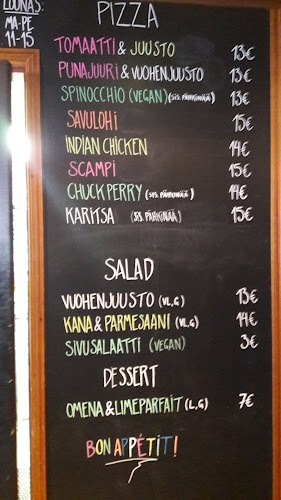 LOUNAS:
MA-PE
11-15
PIZZA
TOMAATTI & JUUSTO 13€
PUNAJUURI & VUOHENJUUSTO 13€
SPINOCCHIO (VEGAN) (SIS. PÄHKINÄÄ) 13€
SAVULOHI 15€
INDIAN CHICKEN 14€
SCAMPI 15€
CHUCK PERRY (SIS. PÄHKINÄÄ) 14€
KARITSA (SIS. PÄHKINÄÄ) 15€
SALAD
VUOHENJUUSTO (VL,G) 13€
KANA & PARMESAANI (VL,G) 14€
SIVUSALAATTI (VEGAN) 3€
DESSERT
OMENA & LIMEPARFAIT (L,G) 7€
BON APPÉTIT!